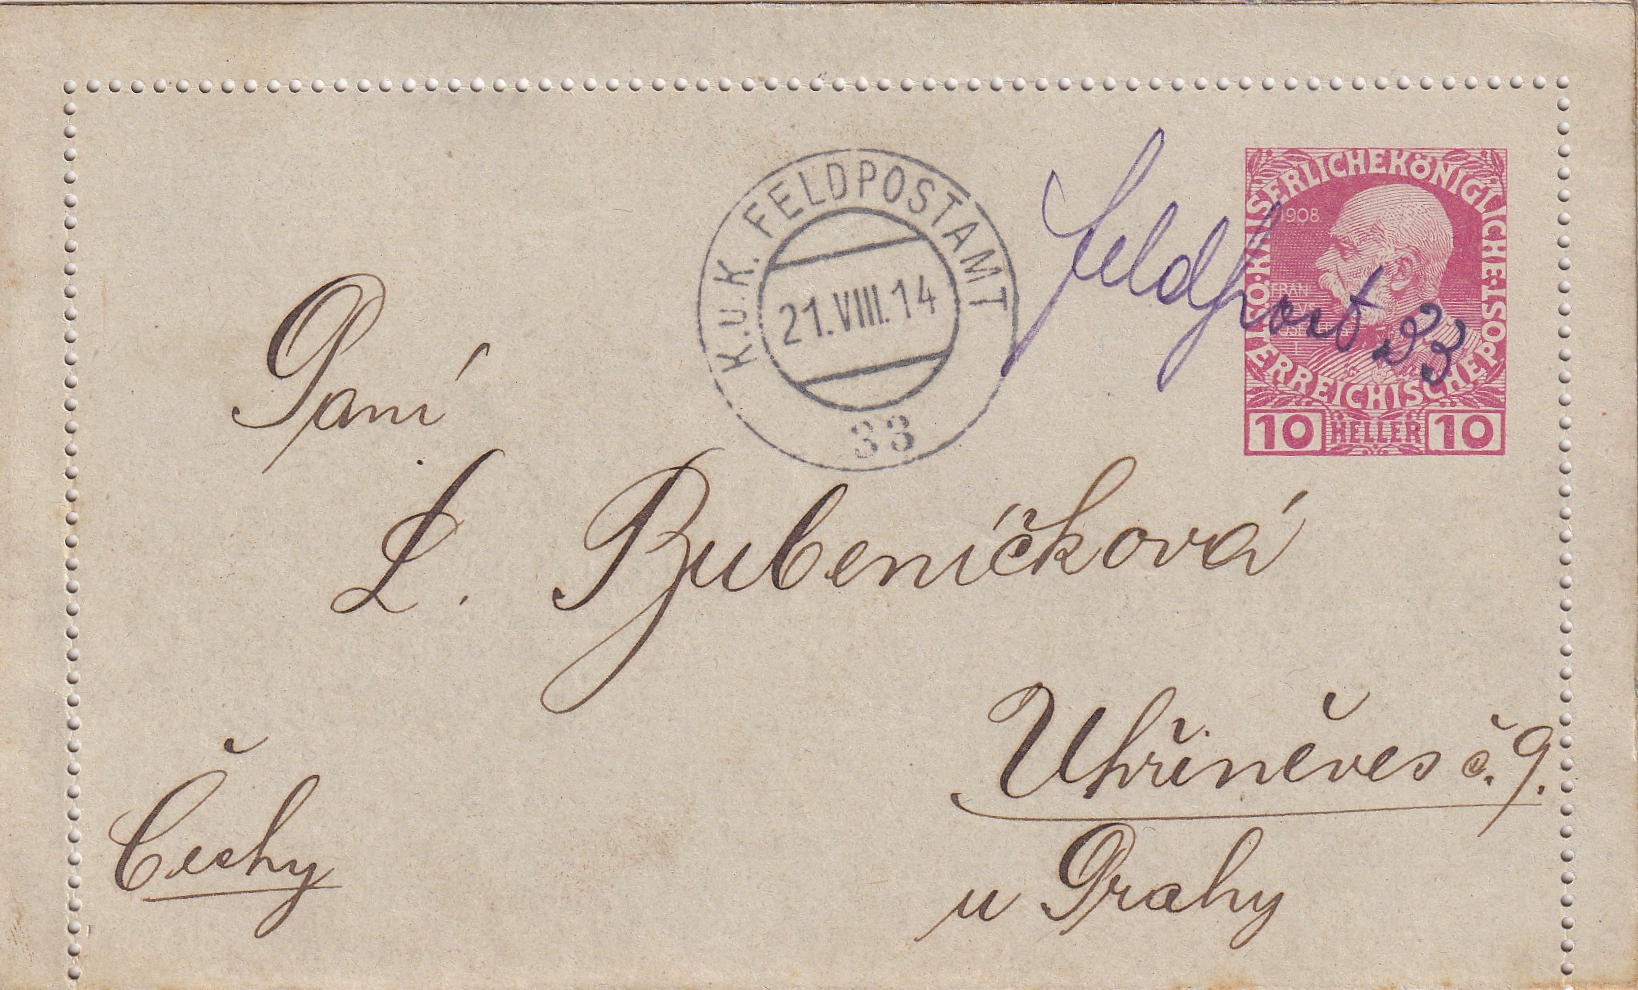 K.u.K. FELDPOSTAMT
21.VIII.14
33
Feldpost 33
KAISERLICHEKÖNIGLICHE·ÖSTERREICHISCHEPOST
1908
FRAN
10 HELLER 10
Paní
L. Bubeníčková
Uhříněves č. 9.
u Prahy
Čechy